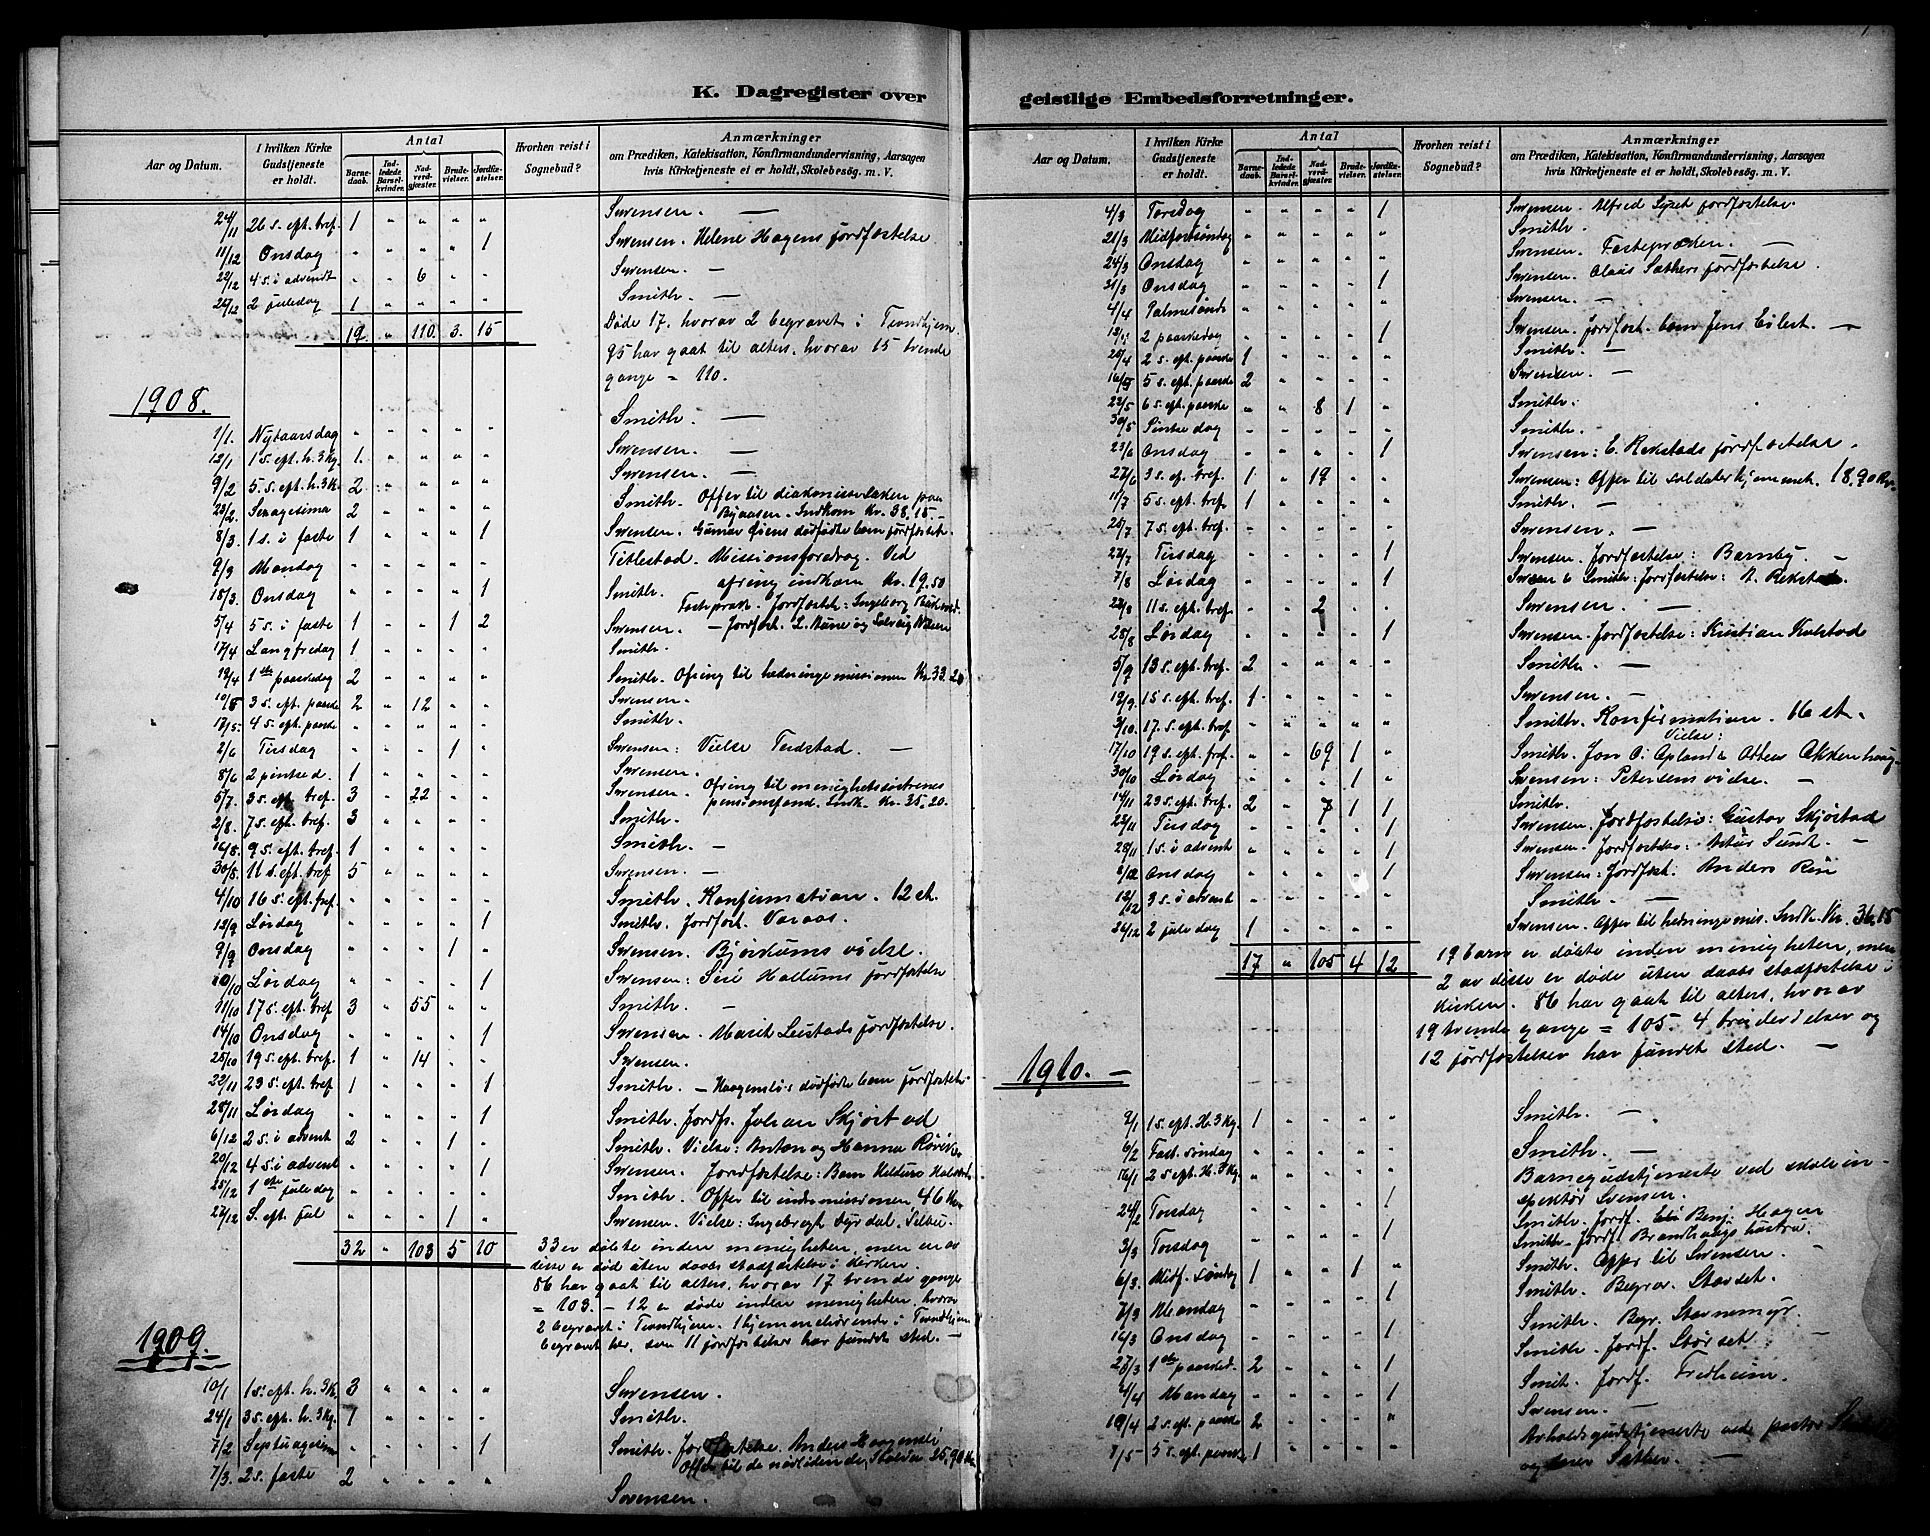 K. Dagregister over geistlige Embedsforretninger.
Aar og Datum. | I hvilken Kirke Gudstjeneste er holdt. | Antal | Barnedaab. | Indledede Barselkvinder. | Nadverdgjæster. | Brudevielser. | Jordfæstelser. | Hvorhen reist i Sognebud? | Anmærkninger om Prædiken, Katekisation, Konfirmandundervisning, Aarsagen hvis Kirketjeneste ei er holdt, Skolebesøg. m. V.
24/11 26 s. eft. tref. 1 " " " " Sørensen. —
11/12 Onsdag " " " " 1 Sørensen. Helene Hagens jordfæstelse
22/12 4 s. i advendt " " 6 " " Sørensen —
26/12 2 juledag 1 " " " " Smith. —
19 " 110. 3. 15 Døde 17, hvorav 2 begravet i Trondhjem.
95 har gaat til alters, hvorav 15 tvende
gange = 110.
1908.
1/1. Nytaarsdag " " " " " Smith. —
12/1 1 s. eft. h. 3 Kg. 1. " " " " Sørensen. —
9/2 5. s. eft. h. 3 K. 2 " " " " Sørensen. —
23/2. Sexagesima 2 " " " " Smith. Offer til diakonisse
Byaasen. Indkom Kr. 38.15. —
8/3. 1 s. i faste 1 " " " 1 Sørensen. Gunnar Øiens dødfødte barn jordfæstet.
9/3 Mandag " " " " " Titlestad. Missionsforedrag. Ved
ofring indkom Kr. 19.50
18/3. Onsdag " " " " 1 Smith.
Fastepræk. Jordfæstet: Ingeborg
5/4 5 s. i faste 1 " " 1 2 Sørensen. — Jordfæst.
17/4 Langfredag 1 " " " " Smith.
19/4 1ste paaskedag 2 " " " " Smith. Ofring til hedningemissionen Kr. 33.20
10/5 3 s. eft. paaske 2 " 12 " " Sørensen.
17/5. 4 s. eft. paaske " " " " " Smith.
2/6 Tirsdag " " " 1 " Sørensen: Vielse —
8/6 2 pintsed. 1 " " " " Sørensen.
5/7. 3 s. eft. tref. 3 " 22 " " Sørensen. Ofring til menighetssøstrenes
pensionsfond. Indk. Kr. 35.20.
2/8. 7 s. eft. tref. 3 " " " " Smith.
16/8. 9 s. eft. tref. 1 " " " " Smith. —
30/8. 11 s. eft. tref 5 " " " " Sørensen. —
4/10 16 s. eft. tref. " " " " " Smith. Konfirmation. 12 st.
12/9 Lørdag " " " " 1 Smith. Jordfæst. Varaas.
9/9 Onsdag " " " 1 " Sørensen. Bjørkums vielse.
10/10 Lørdag " " " " 1 Sørensen: Hallums jordfæstelse
11/10 17 s. eft. tref 3 " 55 " " Smith. —
14/10 Onsdag " " " " 1 Sørensen. Marit Leistads jordfæstelse.
25/10 19 s. eft. tref. 1 " 14 " " Sørensen.
22/11 23 s. eft. tref 1 " " " 1 Smith. — Haagensli's dødfødte barn jordfæstet.
28/11 Lørdag " " " " 1 Smith. Jordf. Johan Skjøstad
6/12 2 s. i advent 2 " " 1 " Smith. Vielse: Anton og Hanna
20/12 4 s. i advent " " " " 1 Sørensen. Jordfæstelse: Barn
25/12 1ste juledag " " " " " Smith. Offer til indremissionen 46 Kr.
27/12 S. eft. jul " " " 1 " Sørensen. Vielse: Ingebrigt Dyrdal, Selbu.
32 " 103 5 10 33 er døpte inden menigheten, men en av
disse er død uten daabs stadfæstelse i kirken.
86 har gaat til alters, hvorav 17 tvende gange
= 103. — 12 er døde inden menigheten, hvorav
2 begravet i Trondhjem. 1 hjemmehørende i Trondhjem
begravet her, saa 11 jordfæstelser har fundet sted. —
1909.
10/1 1 s. eft. h. 3 K. 3 " " " " Sørensen.
24/1 3 s. eft. h. 3 Kg. 1 " " " " Smith.
7/2 Septuagesima " " " " 1 Smith. Jordfæstelse. Anders Haagensli
Offer til de nødlidende, Kr. 25.90
7/3. 2 s. faste 2 " " " " Sørensen.
Aar og Datum. | I hvilken Kirke Gudstjeneste er holdt. | Antal | Barnedaab. | Indledede Barselkvinder. | Nadverdgjæster. | Brudevielser. | Jordfæstelser. | Hvorhen reist i Sognebud? | Anmærkninger om Prædiken, Katekisation, Konfirmandundervisning, Aarsagen hvis Kirketjeneste ei er holdt, Skolebesøg. m. V.
4/3 Torsdag " " " " 1 Sørensen. Alfred jordfæstelse.
21/3 Midfastsøndag " " " " " Smith.
24/3 Onsdag " " " " " Sørensen. Fastepræken. —
31/3 Onsdag " " " " 1 Sørensen. Olaus Sæthers jordfæstelse.
4/4 Palmesønd. " " " " " Sørensen. —
12/4 2 paaskedag " " " " 1 Sørensen. Jordfæst. barn Jens —
2 s. eft. paaske 1 " " " " Smith. —
16/5 5 s. eft. paaske 2 " " " " Sørensen. —
23/5 6 s. eft. paaske " " 8 1 " Smith.
30/5 Pintsedag " " " " " Smith.
23/6 Onsdag " " " " 1 Sørensen: E. Rekstads jordfæstelse.
27/6 3 s. ef. tref. 1 " 19 " " Sørensen: Offer til soldaterhjemmet. 18,90 Kr.
11/7 5 s. eft. tref 1 " " " " Smith. —
25/7 7 s. eft. tref. " " " " " Sørensen. —
27/7 Tirsdag " " " " 1 Sørensen. Jordfæstelse: Barnby. —
7/8 Lørdag " " " " 1 Sørensen & Smith: Jordfæstelse: A. Rekstad.
11 s. eft. tref. " " 2 " " Sørensen. —
28/8 Lørdag " " " " 1 Sørensen. Jordfæstelse: Kristian Kalstad
5/9 13 s. eft. tref. 2 " " " " Smith. —
19/9. 15 s. eft. tref. 1 " " " " Sørensen. —
3/10 17. s. eft. tref. " " " " " Smith. Konfirmation. 16 st.
17/10 19 s. eft. tref. " " 69 1 " Vielse: Smith. Jon O.
30/10 Lørdag " " " 1 " Sørensen: Petersens vielse. —
14/11 23 s. eft. tref. 2 " 7 1 1 Smith.
23/11 Tirsdag " " " " 1 Sørensen. Jordfæstelse: Gustav Skjøstad
28/11 1 s. i advent " " " " 1 Sørensen. Jordfæstelse: —
Onsdag " " " " 1 Sørensen: Jordfæst. Anders
12/12 3 s. i advent " " " " " Smith. —
26/12 2 juledag 1 " " " " Sørensen. Offer til hedningemis. Indk. Kr. 36.15
17 " 105 4 12 19 barn er døpte inden menigheten, men
2 av disse er døde uten daabs stadfæstelse i
kirken. 86 har gaat til alters, hvorav
19 tvende gange = 105. 4 brudevielser og
12 jordfæstelser har fundet sted. —
1910. —
9/1 1 s. eft. H. 3 Kg. 1 " " " " Smith. —
6/2 Fast. søndag " " " " " Smith. —
16/1 2 s. eft. H. 3 Kg. " " " " " Barnegudstjeneste ved skolein-
spektør Svensen.
24/2 Torsdag " " " " 1 Smith. Jordf. Benj. Hagen
3/3 Torsdag " " " " 1 Smith. Jordf. Brandhaugs hustru.
6/3. Midf. søndag 1 " " 1 " Smith. Offer til Sørensen. —
7/3 Mandag " " " " 1 Smith. Begrav. Stavset.
16/3 Onsdag " " " " 1 Smith. Begr. Stavnemyr.
27/3 1ste paasked. 2 " " " 1 Smith. Jordf. Størset —
4/4 Mandag " " " " 1 Smit. Jordf. Fredheim.
10/4 2 s. eft. paaske 2 " " " " Sørensen —
1/5 5 s. eft. paaske 1 " " " 1 Avholdsgudstjeneste ved pastor
og Sæther. —